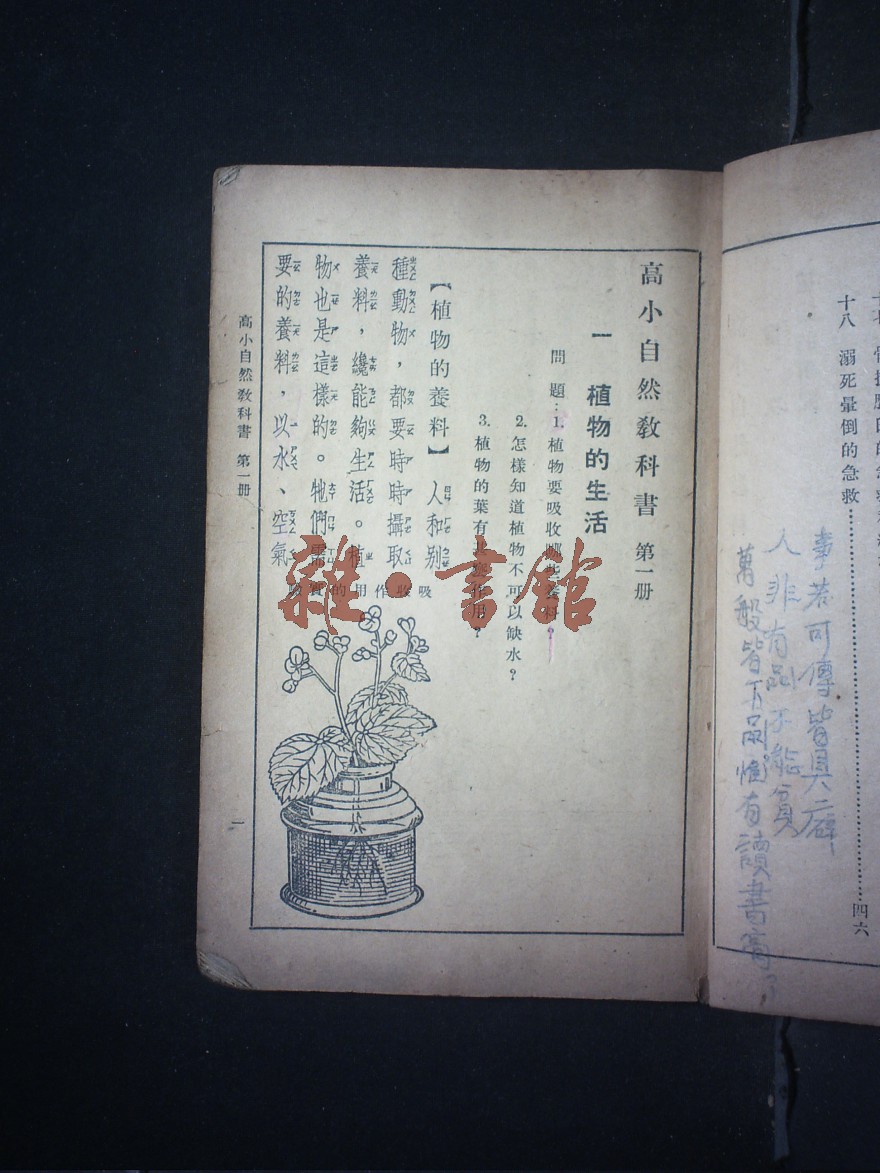 十八 溺死暈倒的急救……………………四六
事若可傳皆具癖
人非有品不能貧
萬般皆下品惟有讀書高
高小自然教科書 第一冊
一 植物的生活
問題:1. 植物要吸收哪些養料?
2. 怎樣知道植物不可以缺水?
3. 植物的葉有甚麼作用?
【植物的養料】 人和別
種動物,都要時時攝取
養料,纔能夠生活。植
物也是這樣的。牠們需
要的養料,以水、空氣
吸收作用的實驗
高小自然教科書 第一冊
一
雜·書館